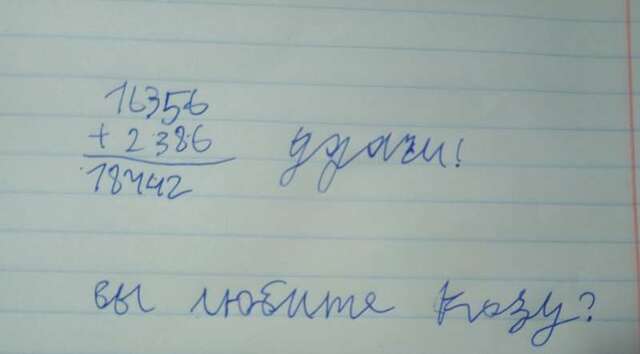 16356
+ 2386 удачи!
18742
вы любите козу?